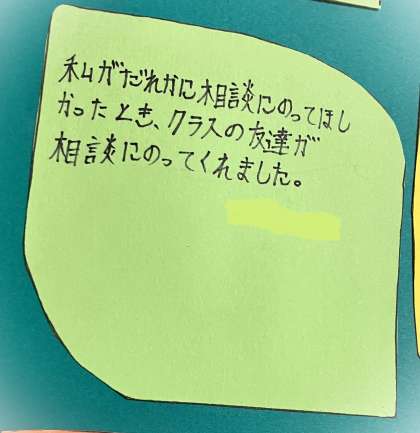 私がだれかに相談にのってほし
かったとき、クラスの友達が
相談にのってくれました。